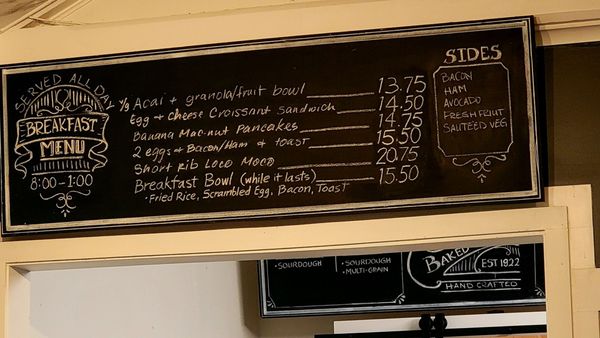 SERVED ALL DAY
BREAKFAST
MENU
8:00-1:00
1/2 Acai + granola/fruit bowl 13.75
Egg + Cheese Croissant Sandwich 14.50
Banana Mac-nut Pancakes 14.75
2 eggs + Bacon/Ham + toast 15.50
Short Rib Loco Moco 20.75
Breakfast Bowl (while it lasts) 15.50
• Fried Rice, Scrambled Egg, Bacon, Toast
SIDES
BACON
HAM
AVOCADO
FRESH FRUIT
SAUTEED VEG
• SOURDOUGH
• SOURDOUGH
• MULTI-GRAIN
BAKED
EST 1922
HAND CRAFTED